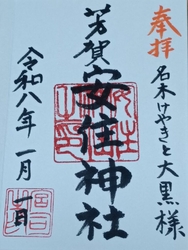 奉拝
名木けやきと大黒様
芳賀
安住神社
令和八年一月一日